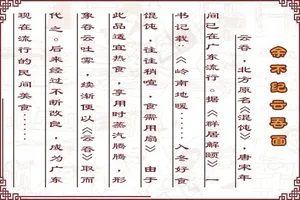 余不纪云吞面
云吞，北方原名《混饨》，唐宋年
间已在广东流行。据《群居解颐》一
书记载：《岭南地暖……入冬好食
馄饨，往往稍喧，食需用扇》由于
此品适宜热食，享用时蒸汽腾腾，形
象吞云吐雾，续渐便以《云吞》取而
代之。后来经过不断改良，成为广东
现在流行的民间美食……